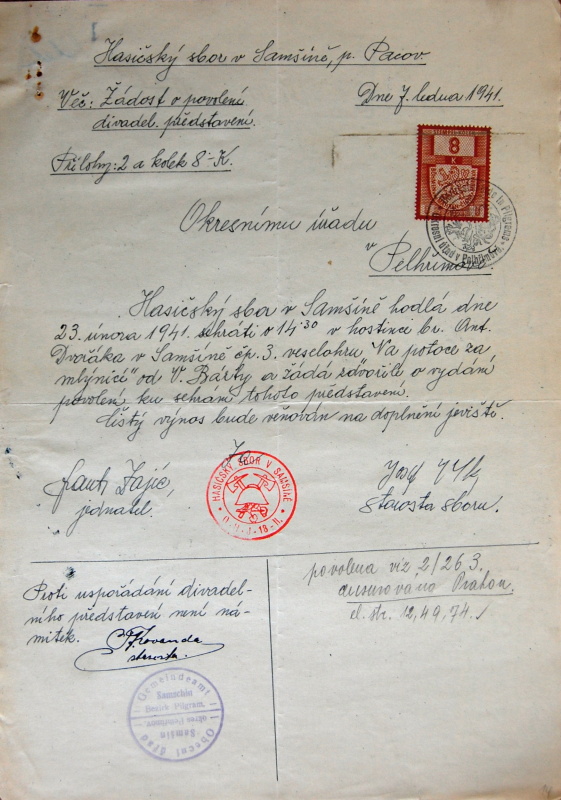 Hasičský sbor v Samšíně, p. Pacov.
Věc: Žádost o povolení
divadel. představení.
Dne 7. ledna 1941.
Přílohy: 2 a kolek 8-K.
8
K
Okresnímu úřadu
v Pelhřimově.
Okresní úřad v Pelhřimově
Hasičský sbor v Samšíně hodlá dne
23. února 1941 sehráti o 14·30 v hostinci br. Ant.
Dvořáka v Samšíně čp. 3. veselohru "Na potoce za
mlýnicí" od V. Bárty a žádá zdvořile o vydání
povolení ku sehrání tohoto představení.
Čistý výnos bude věnován na doplnění jeviště.
Za
Frant. Zajíc,
jednatel.
HASIČSKÝ SBOR V SAMŠÍNĚ
Josef
starosta sboru.
Proti uspořádání divadel-
ního představení není ná-
mitek.
Kovanda
starosta
povolena viz 2/26 3.
censurováno Prahou.
el. str. 12, 49, 74.
Gemeindeamt
Samschin
Bezirk Pilgram.
okres Pelhřimov.
Samšín
Obecní úřad